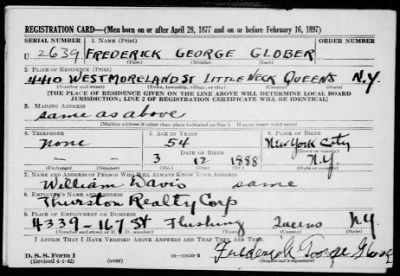 REGISTRATION CARD—(Men born on or after April 28, 1877 and on or before February 16, 1897)
SERIAL NUMBER 1. NAME (Print) ORDER NUMBER
U 2639 FREDERICK GEORGE GLOBER
2. PLACE OF RESIDENCE (Print)
4410 WESTMORELAND ST LITTLE NECK QUEENS N.Y.
(Number and street) (Town, township, village, or city) (County) (State)
[THE PLACE OF RESIDENCE GIVEN ON THE LINE ABOVE WILL DETERMINE LOCAL BOARD
JURISDICTION; LINE 2 OF REGISTRATION CERTIFICATE WILL BE IDENTICAL]
3. MAILING ADDRESS
same as above
[Mailing address if other than place indicated on line 2. If same insert word same]
4. TELEPHONE 5. AGE IN YEARS 6. PLACE OF BIRTH
none 54 New York City
DATE OF BIRTH (Town or county)
— — 3 12 1888 N.Y.
(Exchange) (Number) (Mo.) (Day) (Yr.) (State or country)
7. NAME AND ADDRESS OF PERSON WHO WILL ALWAYS KNOW YOUR ADDRESS
William Davis same
8. EMPLOYER'S NAME AND ADDRESS
Thurston Realty Corp
9. PLACE OF EMPLOYMENT OR BUSINESS
4339 - 167 St Flushing Queens N.Y
(Number and street or R. F. D. number) (Town) (County) (State)
I AFFIRM THAT I HAVE VERIFIED ABOVE ANSWERS AND THAT THEY ARE TRUE.
D. S. S. Form 1
(Revised 4-1-42) (over)
Frederick George Glober